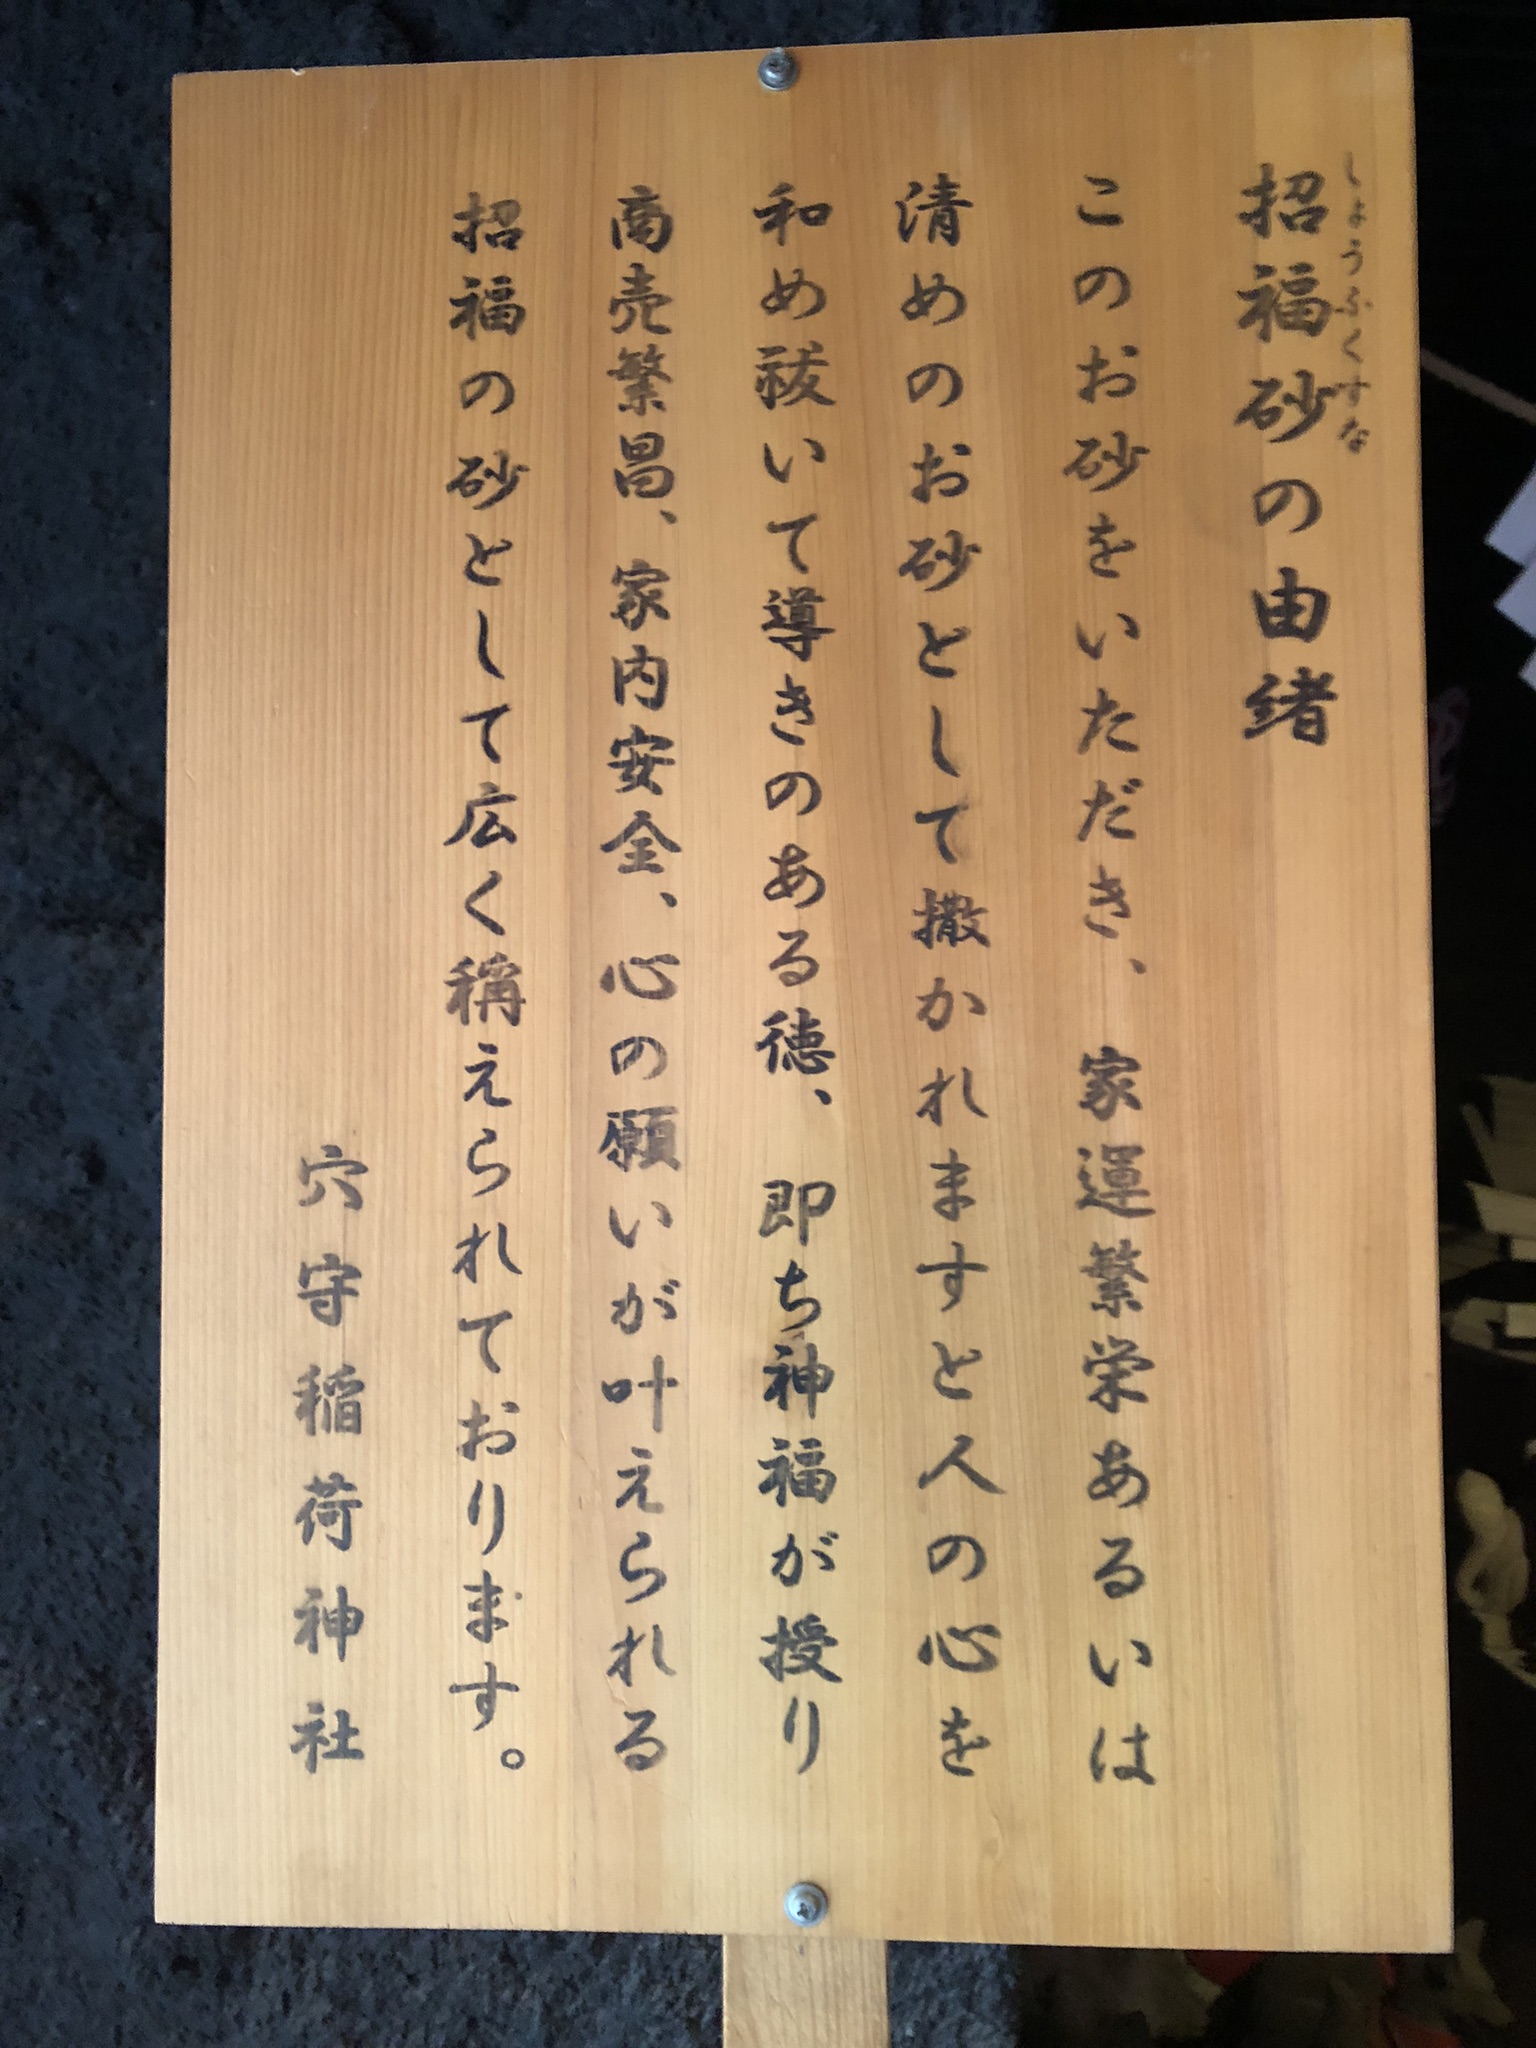 招福砂の由緒
しょうふくすな
このお砂をいただき、家運繁栄あるいは
清めのお砂として撒かれますと人の心を
和め祓いて導きのある徳、即ち神福が授り
商売繁昌、家内安全、心の願いが叶えられる
招福の砂として広く稱えられております。
穴守稲荷神社